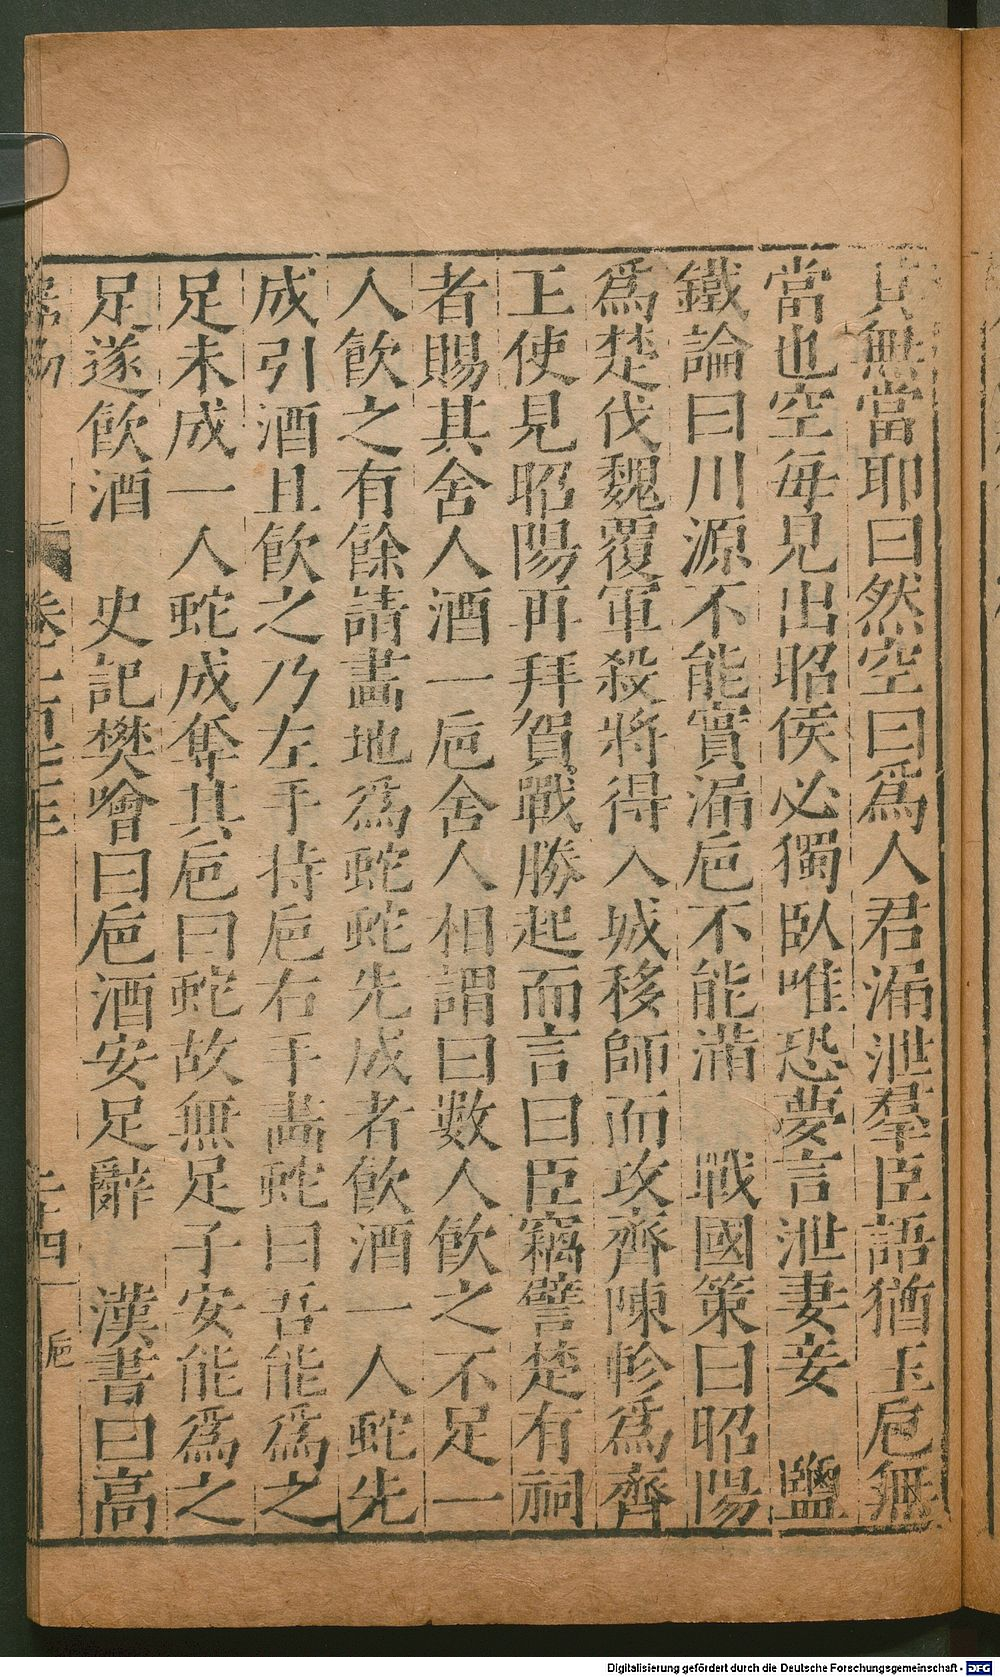 其無當耶曰然空曰爲人君漏泄羣臣語猶玉巵無
當也空每見出昭侯必獨臥唯恐夢言泄妻妾　鹽
鐵論曰川源不能實漏巵不能滿　戰國策曰昭陽
爲楚伐魏覆軍殺將得入城移師而攻齊陳軫爲齊
王使見昭陽再拜賀戰勝起而言曰臣竊譬楚有祠
者賜其舍人酒一巵舍人相謂曰數人飲之不足一
人飲之有餘請畫地爲蛇蛇先成者飲酒一人蛇先
成引酒且飲之乃左手持巵右手畵蛇曰吾能爲之
足未成一人蛇成奪其巵曰蛇故無足子安能爲之
足遂飲酒　史記樊噲曰巵酒安足辭　漢書曰高
巵
Digitalisierung gefördert durch die Deutsche Forschungsgemeinschaft - DFG